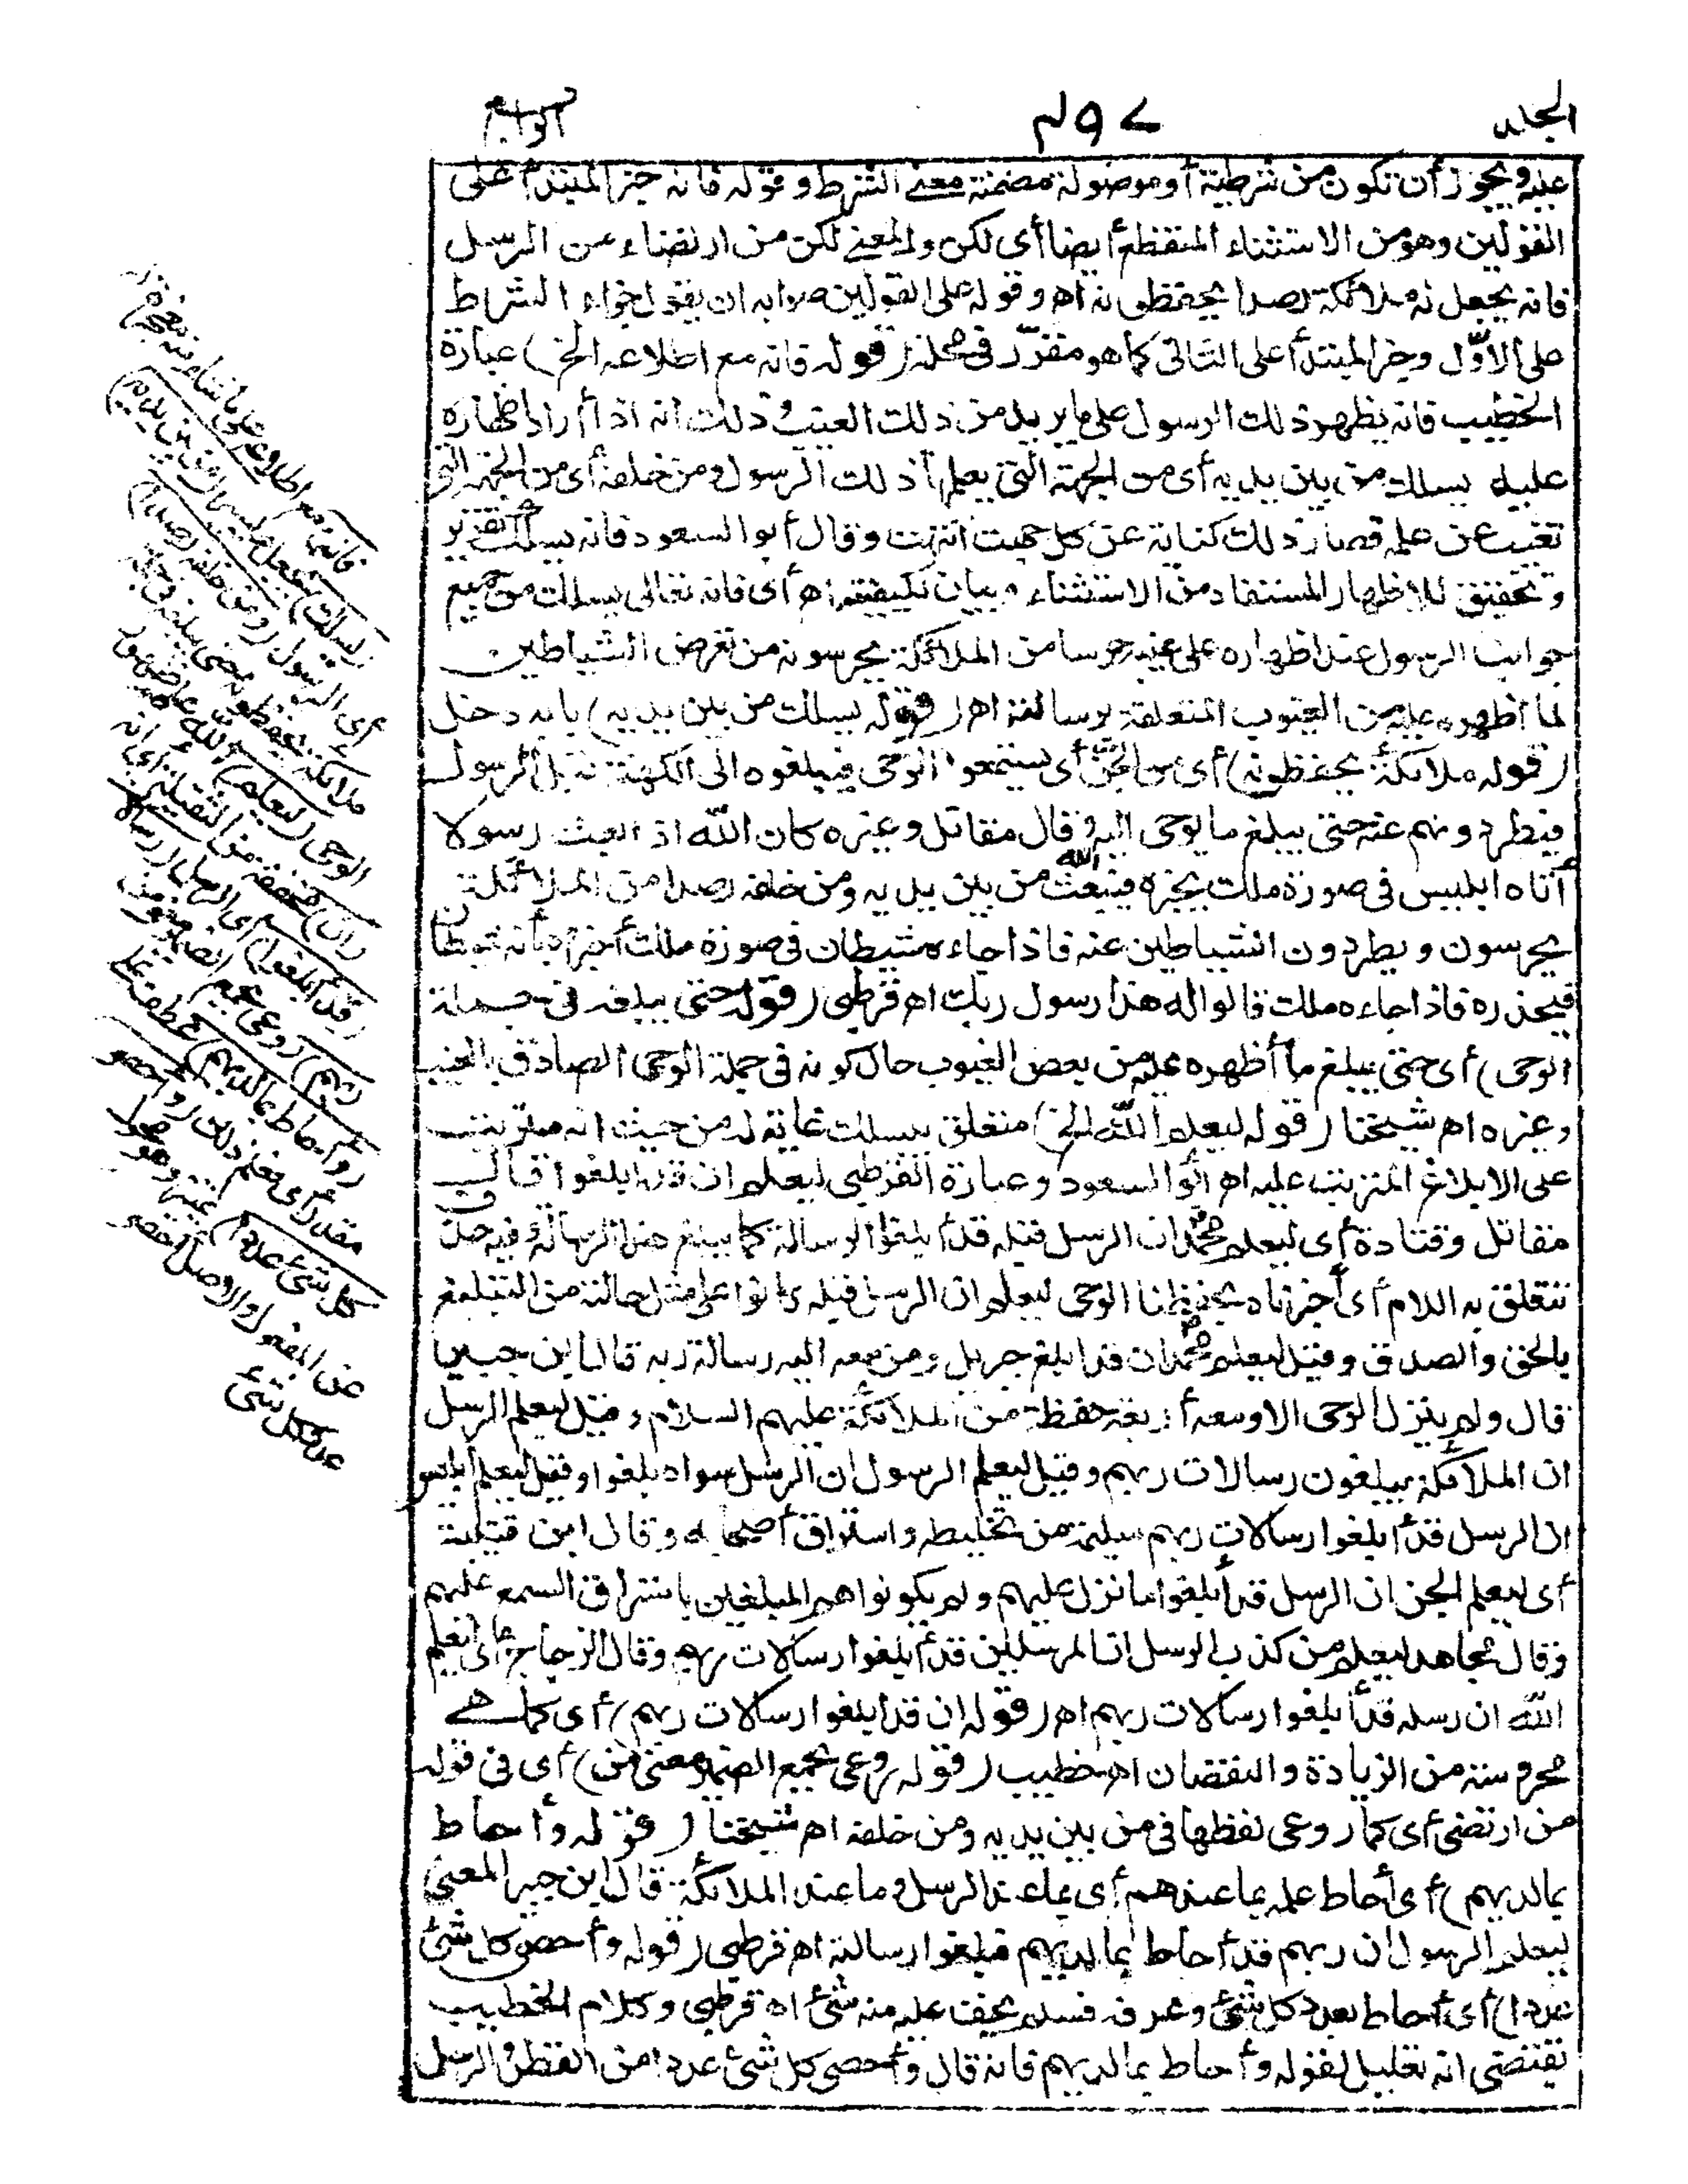 الجلد
٤٩٧
الرابع
عليه ويجوز أن تكون من شرطية أو موصولة مضمنة معنى الشرط وقوله فانه خبر المبتدأ على
القولين وهو من الاستثناء المنقطع أيضا أى لكن والمعنى لكن من ارتضاه من الرسل
فانه يجعل له ملائكة رصدا يحفظونه اه وقوله على القولين صوابه ان يقول جواء الشرط
على الاوّل وخبر المبتدأ على الثانى كما هو مقرّر فى محله (قوله فانه مع اطلاعه الخ) عبارة
الخطيب فانه يظهر ذلك الرسول على ما يريد من ذلك الغيب وذلك انه اذا أراد اظهاره
عليه يسلك من بين يديه أى من الجهة التى يعلمها ذلك الرسول ومن خلفه أى من الجهة التى
تغيب عن علمه فصار ذلك كناية عن كل جهت انتهت وقال أبو السعود فانه يسلك تقرير
وتحقيق للاظهار المستفاد من الاستثناء وبيان لكيفيته اه أى فانه تعالى يسلك من جميع
جوانب الرسول عند اظهاره على غيبه حرسا من الملائكة يحرسونه من تعرض الشياطين
لما اظهره عليه من الغيوب المتعلقة برسالته اه (قوله يسلك من بين يديه) بابه دخل
(قوله ملائكة يحفظونه) أى من الجن أى يستمعوا الوحى فيبلغوه الى الكهنة قبل الرسول
فيطردونهم عنه حتى يبلغ ما يوحى اليه وقال مقاتل وغيره كان الله اذ ابعث رسولا
أتاه ابليس فى صورة ملك يخبره فيبعث الله من بين يديه ومن خلفه رصدا من الملائكة
يحرسون ويطردون الشياطين عنه فاذا جاءه شيطان فى صورة ملك أخبره بأنه شيطان
فيحذره فاذا جاءه ملك قالوا له هذا رسول ربك اه قرطبى (قوله حتى يبلغه فى جملة
الوحى) أى حتى يبلغ ما أظهره عليه من بعض الغيوب حال كونه فى جملة الوحى الصادق بالغيب
وغيره اه شيخنا (قوله ليعلم الله الخ) متعلق بيسلك غاية له من حيث انه مترتب
على الابلاغ المترتب عليه اه أبو السعود وعبارة القرطبى ليعلم ان قد أبلغوا قال
مقاتل وقتادة أى ليعلم محمد ان الرسل قبله قد أبلغوا الرسالة كما يبلغ هذا الرسالة وفيه حذف
تتعلق به اللام أى أخبرناه بحفظنا الوحى ليعلم ان الرسل قبله كانوا على مثل حالته من التبليغ
بالحق والصدق وقيل ليعلم محمد ان قد أبلغ جبريل ومن معه اليه رسالة ربه قاله ابن جبير
قال ولم ينزل الوحى الا ومعه أربعة حفظة من الملائكة عليهم السلام وقيل ليعلم الرسل
ان الملائكة يبلغون رسالات ربهم وقيل ليعلم الرسول ان الرسل سواه بلغوا وقيل ليعلم ابليس
ان الرسل قد أبلغوا رسالات ربهم سليمة من تخليطه واستراق أصحابه وقال ابن قتيبة
أى ليعلم الجن ان الرسل قد أبلغوا ما نزل عليهم ولم يكونوا هم المبلغين باستراق السمع عليهم
وقال مجاهد ليعلم من كذب الرسل ان المرسلين قد أبلغوا رسالات ربهم وقال الزجاج أى ليعلم
الله ان رسله قد أبلغوا رسالات ربهم اه (قوله ان قد أبلغوا رسالات ربهم) أى كما هى
محروسة من الزيادة والنقصان اه خطيب (قوله روعى بجمع الضمير معنى من) أى فى قوله
من ارتضى أى كما روعى لفظها فى من بين يديه ومن خلفه اه شيخنا (قوله وأحاط
بما لديهم) أى أحاط علمه بما عندهم أى بما عند الرسل وما عند الملائكة قال ابن جبير المعنى
ليعلم الرسول ان ربهم قد أحاط بما لديهم فبلغوا رسالته اه قرطبى (قوله وأحصى كل شئ
عددا) أى أحاط بعدد كل شئ وعرفه فلم يخف عليه منه شئ اه قرطبى وكلام الخطيب
يقتضى انه تعليل لقوله وأحاط بما لديهم فانه قال وأحصى كل شئ عددا من القطر والرمل
فانه مع اطلاعه على ما شاء منه معجزة له
(يسلك) يجعل ويسير (من بين يديه)
أى الرسول (ومن خلفه رصدا)
ملائكة يحفظونه حتى يبلغه فى جملة
الوحى (ليعلم) الله علم ظهور
(ان) مخففة من الثقيلة أى انه
(قد أبلغوا) أى الرسل (رسالات
ربهم) روعى بجمع الضمير معنى من
(وأحاط بما لديهم) عطف على
مقدر أى فعلم ذلك (وأحصى
كل شئ عددا) تمييز وهو محول
عن المفعول والاصل أحصى
عدد كل شئ